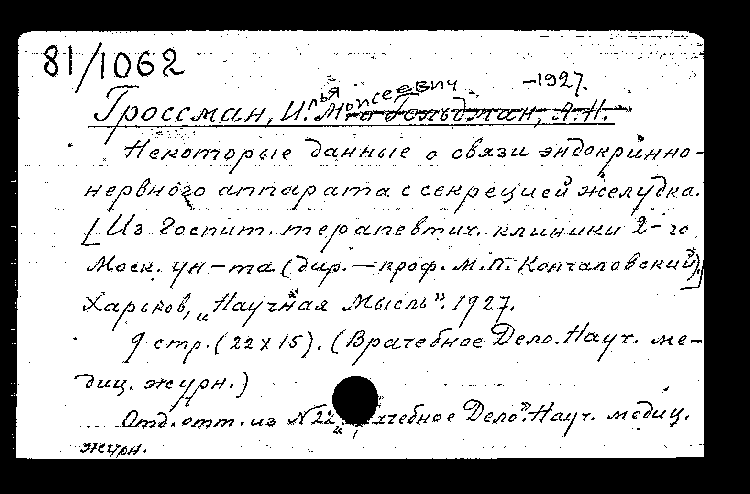 81/1062
-1927.
Гроссман, Илья Моисеевич и Гольдман, А.Н.
Некоторые данные о связи эндокринно-
нервного аппарата с секрецией желудка.
[Из Госпит. терапевтич. клиники 2-го
Моск. ун-та (дир. — проф. М.П. Кончаловский)]
Харьков, „Научная Мысль". 1927.
9 стр. (22х15). (Врачебное Дело. Науч. ме-
диц. журн.)
Отд. отт. из № 22 „ чебное Дело". Науч. медиц.
журн.